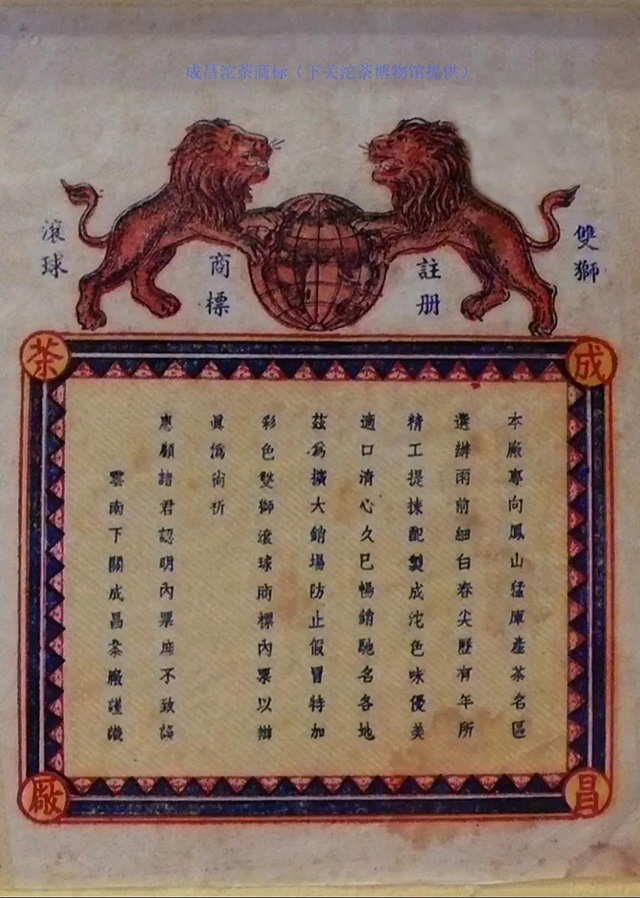 成昌沱茶商标（下关沱茶博物馆提供）
雙獅
滾球
註册
商標
成
昌
茶
廠
本廠專向鳳山猛庫產茶名區
選辦雨前細白春尖歷有年所
精工提揀配製成沱色味優美
適口清心久已暢銷馳名各地
茲為擴大銷場防止假冒特加
彩色雙獅滾球商標內票以辦
眞僞尚祈
惠顧諸君認明內票庶不致誤
雲南下關成昌茶廠謹識